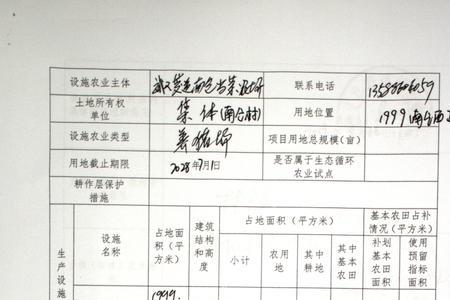 设施农业主体 联系电话
土地所有权单位 集体(南仓村) 用地位置 1999
设施农业类型 养猪场 项目用地总规模(亩)
用地截止期限 2028年7月1日 是否属于生态循环农业试点
耕作层保护措施
生产设施
设施名称
占地面积(平方米)
建筑结构和高度
占地面积(平方米)
小计 农用地 其中耕地 其中基本农田
基本农田占补情况(平方米)
补划基本农田面积 使用预留指标面积
1999.